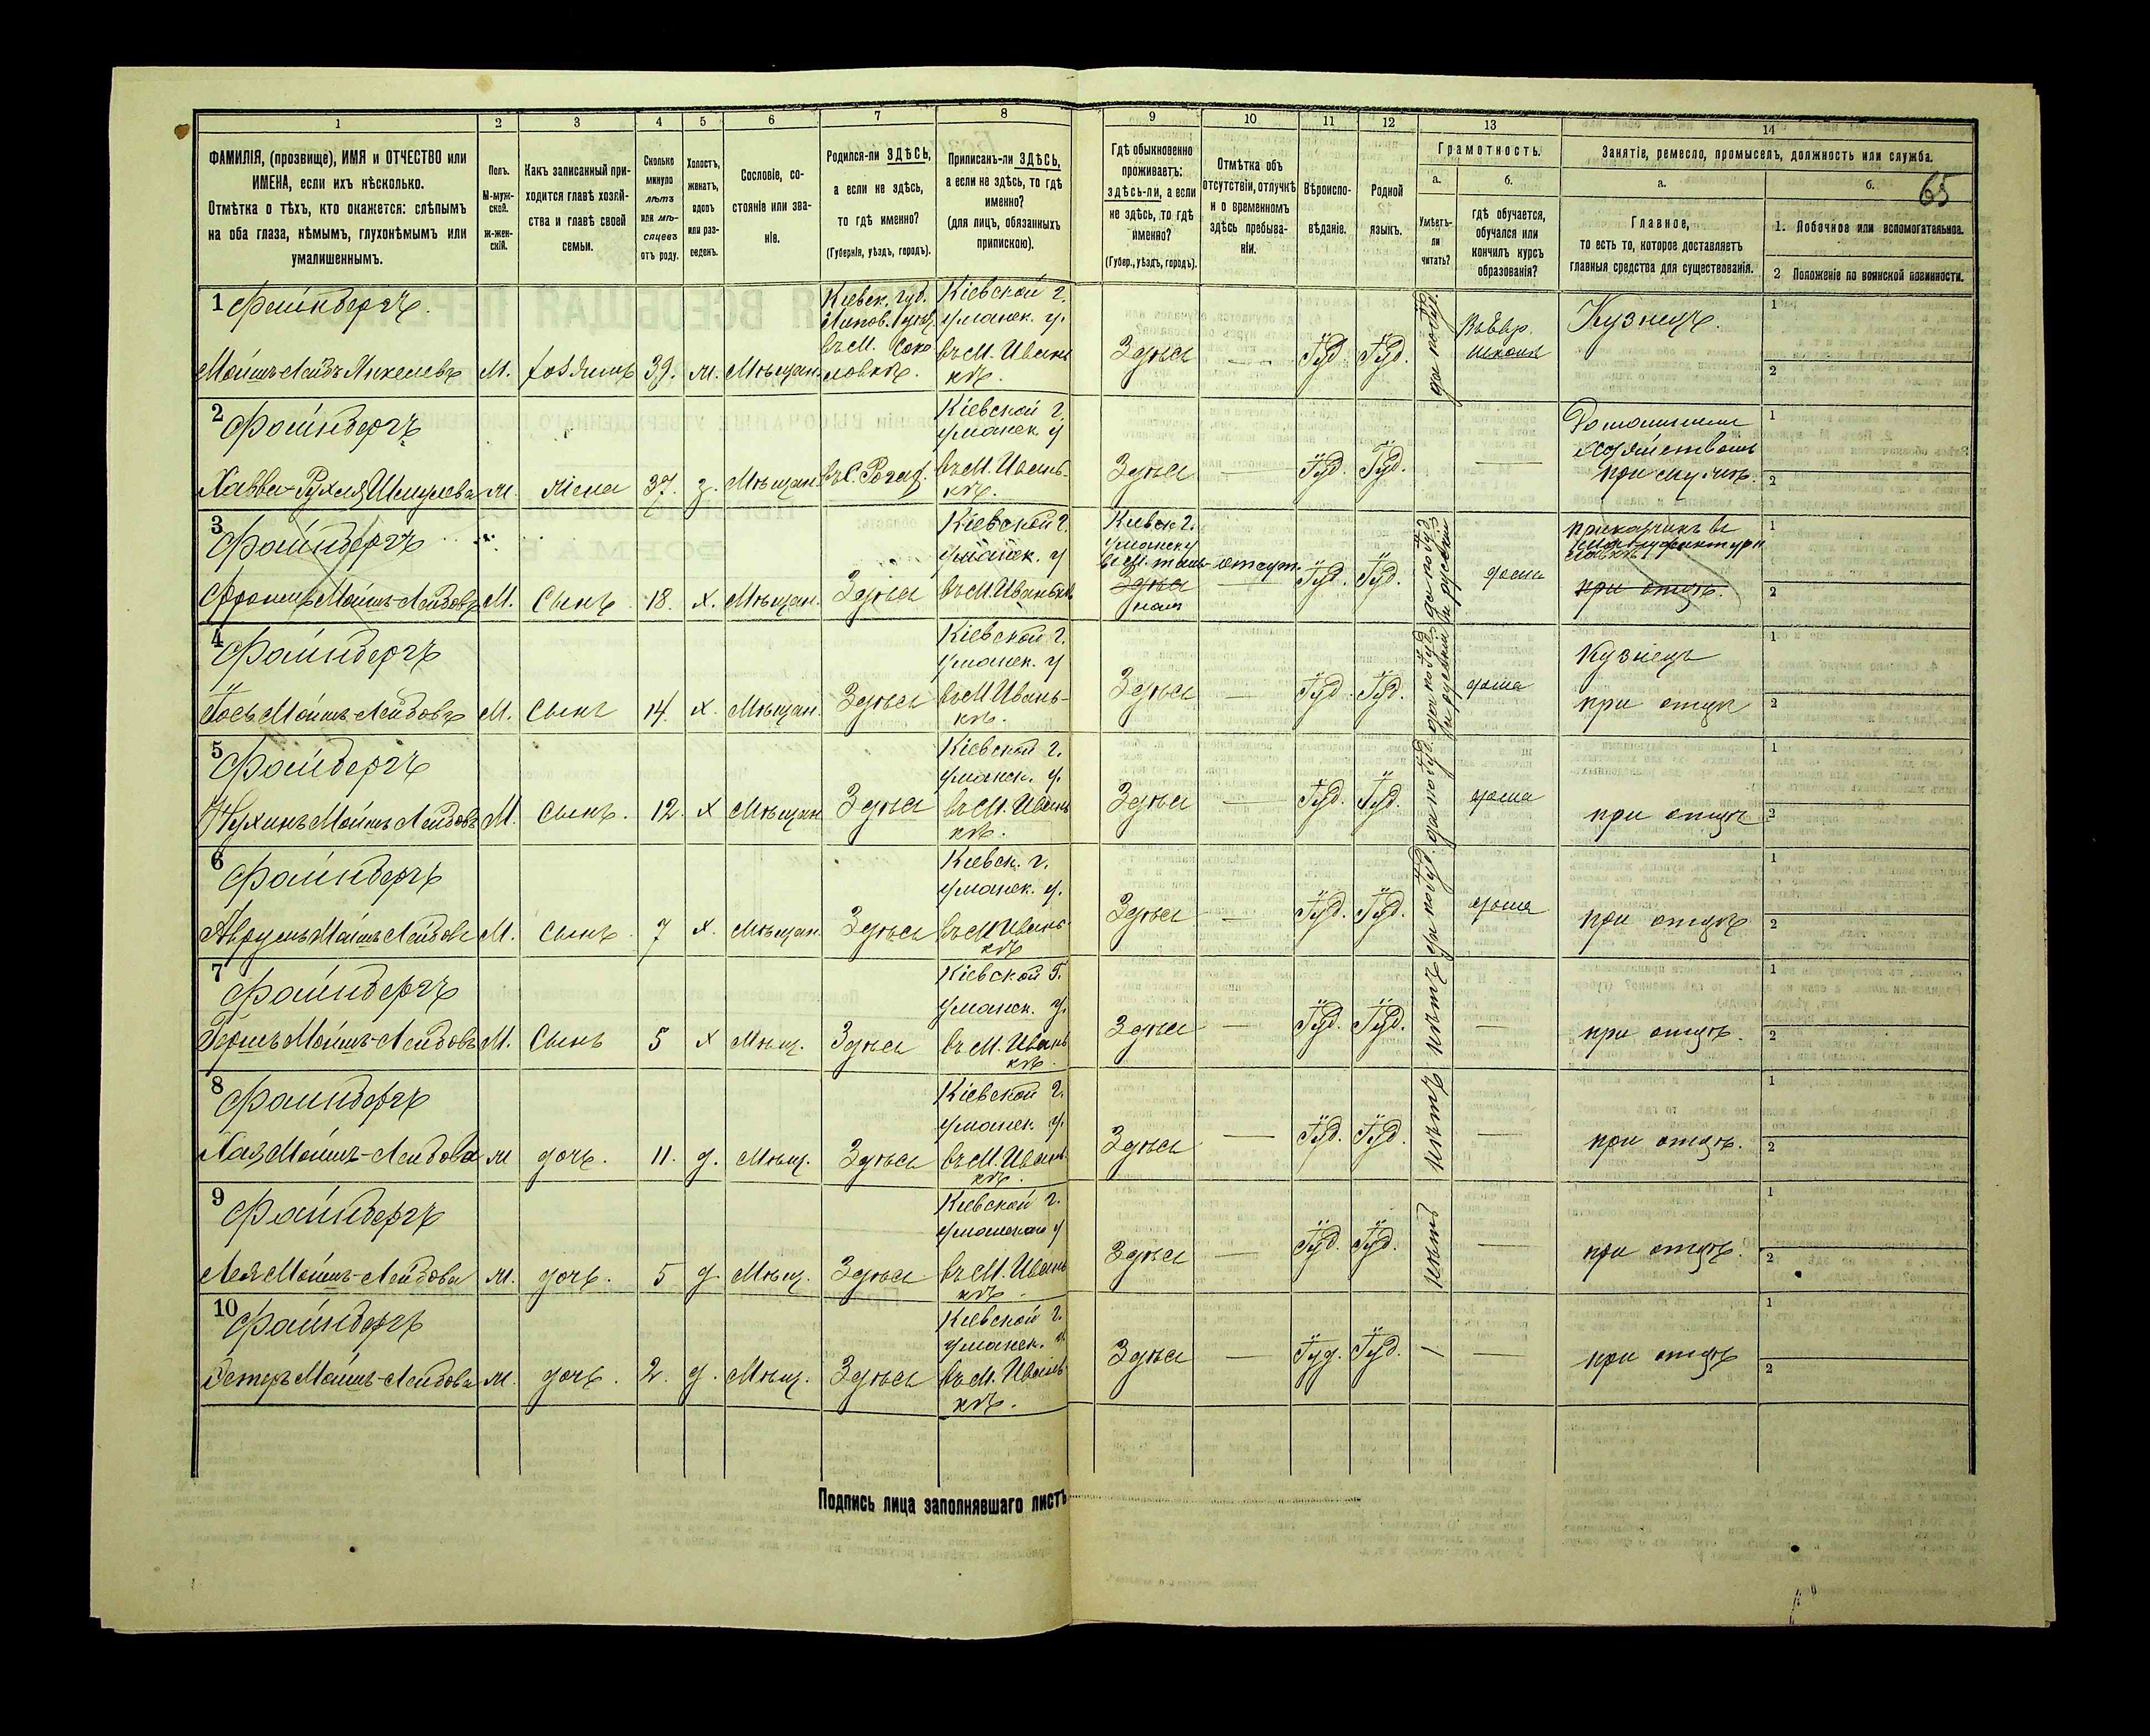 65
1 2 3 4 5 6 7 8 9 10 11 12 13 14
ФАМИЛІЯ, (прозвище), ИМЯ и ОТЧЕСТВО или
ИМЕНА, если ихъ нѣсколько.
Отмѣтка о тѣхъ, кто окажется: слѣпымъ
на оба глаза, нѣмымъ, глухонѣмымъ или
умалишеннымъ.
Полъ.
М-муж-
ской.
ж-жен-
скій.
Какъ записанный при-
ходится главѣ хозяй-
ства и главѣ своей
семьи.
Сколько
минуло
лѣтъ
или мѣ-
сяцевъ
отъ роду.
Холостъ,
женатъ,
вдовъ
или раз-
веденъ.
Сословіе, со-
стояніе или зва-
ніе.
Родился-ли ЗДѢСЬ,
а если не здѣсь,
то гдѣ именно?
(Губернія, уѣздъ, городъ).
Приписанъ-ли ЗДѢСЬ,
а если не здѣсь, то гдѣ
именно?
(для лицъ, обязанныхъ
припискою).
Гдѣ обыкновенно
проживаетъ:
здѣсь-ли, а если
не здѣсь, то гдѣ
именно?
(Губер., уѣздъ, городъ).
Отмѣтка объ
отсутствіи, отлучкѣ
и о временномъ
здѣсь пребыва-
ніи.
Вѣроиспо-
вѣданіе.
Родной
языкъ.
Грамотность.
а.
Умѣетъ-
ли
читать?
б.
гдѣ обучается,
обучался или
кончилъ курсъ
образованія?
Занятіе, ремесло, промыселъ, должность или служба.
а.
Главное,
то есть то, которое доставляетъ
главныя средства для существованія.
б.
1. Побочное или вспомогательное.
2 Положеніе по воинской повинности.
1 Файнбергъ. Кіевск. губ. Кіевской г. 1
Липов. уѣзд. Уманск. у. Кузнецъ.
въ М. Соко въ М. Ивань да по Іуд. школа
Мошъ-Лейбъ М. хозяинъ 39. ж. Мѣщан. ловкѣ. кѣ. Здѣсь — Іуд. Іуд. 2
2 Файнбергъ Кіевской г. Домашнимъ 1
Уманск. у хозяйствомъ
Хавва-Рухля Шмулева м. жена 37. з. Мѣщан. въ С. въ М. Ивань- Здѣсь — Іуд. Іуд. — при мужѣ. 2
кѣ.
3 Файнбергъ Кіевской г. Кіевск г. прикащикъ въ 1
Уманск. у Уманск у мануфактурн
въ М. отсут. лавкѣ
Мошъ-Лейбовъ М. Сынъ 18. х. Мѣщан. Здѣсь въ М. Иваньк. Здѣсь Іуд. Іуд. да по Іуд. и русски дома при отцѣ. 2
4 Файнбергъ Кіевской г. Кузнецъ 1
Уманск. у
Іось Мошъ-Лейбовъ М. Сынъ 14. х. Мѣщан. Здѣсь въ М Ивань- Здѣсь — Іуд. Іуд. да по Іуд. дома при отцѣ 2
кѣ.
5 Файбергъ Кіевской г. 1
Уманск. у.
Мошъ Лейбовъ М. Сынъ. 12. х Мѣщан Здѣсь въ М. Ивань Здѣсь — Іуд. Іуд. да по Іуд. дома при отцѣ 2
кѣ.
6 Файнбергъ Кіевск. г. 1
Уманск. у.
Аврумъ Мошъ Лейбовъ М. Сынъ. 7 х. Мѣщан. Здѣсь въ М Ивань Здѣсь — Іуд. Іуд. да по Іуд. дома при отцѣ 2
кѣ
7 Файнбергъ Кіевской г. 1
Уманск. у.
Гершъ Мошъ-Лейбовъ М. Сынъ 5 х Мѣщ. Здѣсь въ М. Ивань Здѣсь — Іуд. Іуд. нѣтъ — при отцѣ. 2
кѣ.
8 Файнбергъ Кіевской г. 1
Уманск у.
Хая Мошъ-Лейбова м дочь. 11. д. Мѣщ. Здѣсь въ М. Ивань Здѣсь — Іуд. Іуд. нѣтъ — при отцѣ. 2
кѣ.
9 Файнбергъ Кіевской г. 1
Уманской у
Лея Мошъ-Лейбова м. дочь. 5 д Мѣщ. Здѣсь въ М. Ивань Здѣсь — Іуд. Іуд. нѣтъ — при отцѣ. 2
кѣ.
10 Файнбергъ Кіевской г. 1
Уманск. у.
Эстеръ Мошъ-Лейбова м. дочь. 2. д. Мѣщ. Здѣсь въ М. Ивань Здѣсь — Іуд. Іуд. — — при отцѣ 2
кѣ.
Подпись лица заполнявшаго листъ